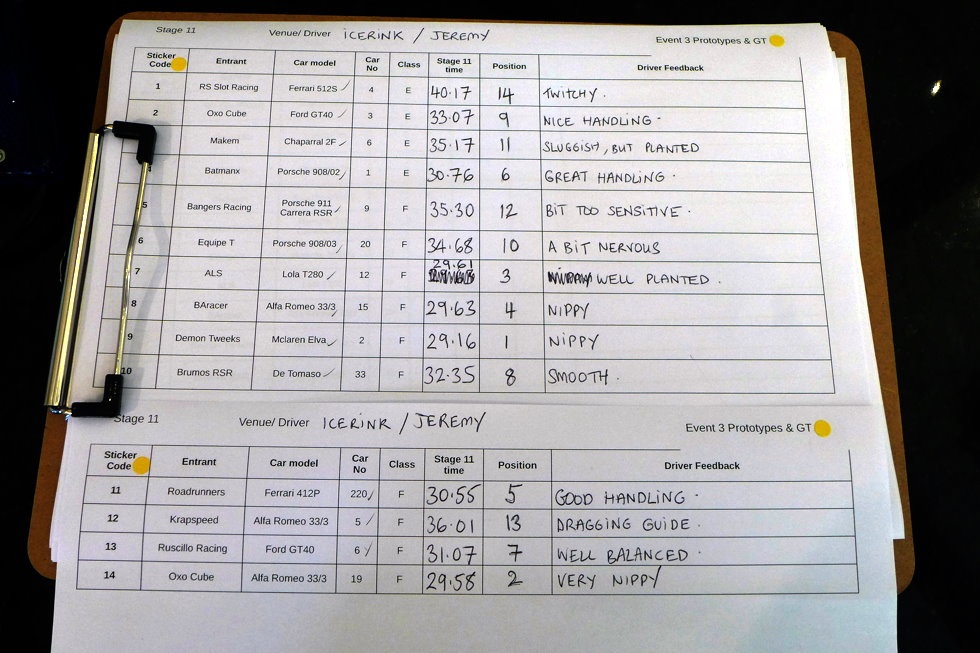 Stage 11 Venue/ Driver ICERINK / JEREMY Event 3 Prototypes & GT
Sticker Code Entrant Car model Car No Class Stage 11 time Position Driver Feedback
1 RS Slot Racing Ferrari 512S 4 E 40.17 14 TWITCHY.
2 Oxo Cube Ford GT40 3 E 33.07 9 NICE HANDLING.
Makem Chaparral 2F 6 E 35.17 11 SLUGGISH, BUT PLANTED
Batmanx Porsche 908/02 1 E 30.76 6 GREAT HANDLING.
5 Bangers Racing Porsche 911 Carrera RSR 9 F 35.30 12 BIT TOO SENSITIVE.
6 Equipe T Porsche 908/03 20 F 34.68 10 A BIT NERVOUS
7 ALS Lola T280 12 F 29.61 3 WELL PLANTED.
8 BAracer Alfa Romeo 33/3 15 F 29.63 4 NIPPY
9 Demon Tweeks Mclaren Elva 2 F 29.16 1 NIPPY
10 Brumos RSR De Tomaso 33 F 32.35 8 SMOOTH.
Stage 11 Venue/ Driver ICERINK / JEREMY Event 3 Prototypes & GT
Sticker Code Entrant Car model Car No Class Stage 11 time Position Driver Feedback
11 Roadrunners Ferrari 412P 220 F 30.55 5 GOOD HANDLING.
12 Krapspeed Alfa Romeo 33/3 5 F 36.01 13 DRAGGING GUIDE.
13 Ruscillo Racing Ford GT40 6 F 31.07 7 WELL BALANCED.
14 Oxo Cube Alfa Romeo 33/3 19 F 29.58 2 VERY NIPPY